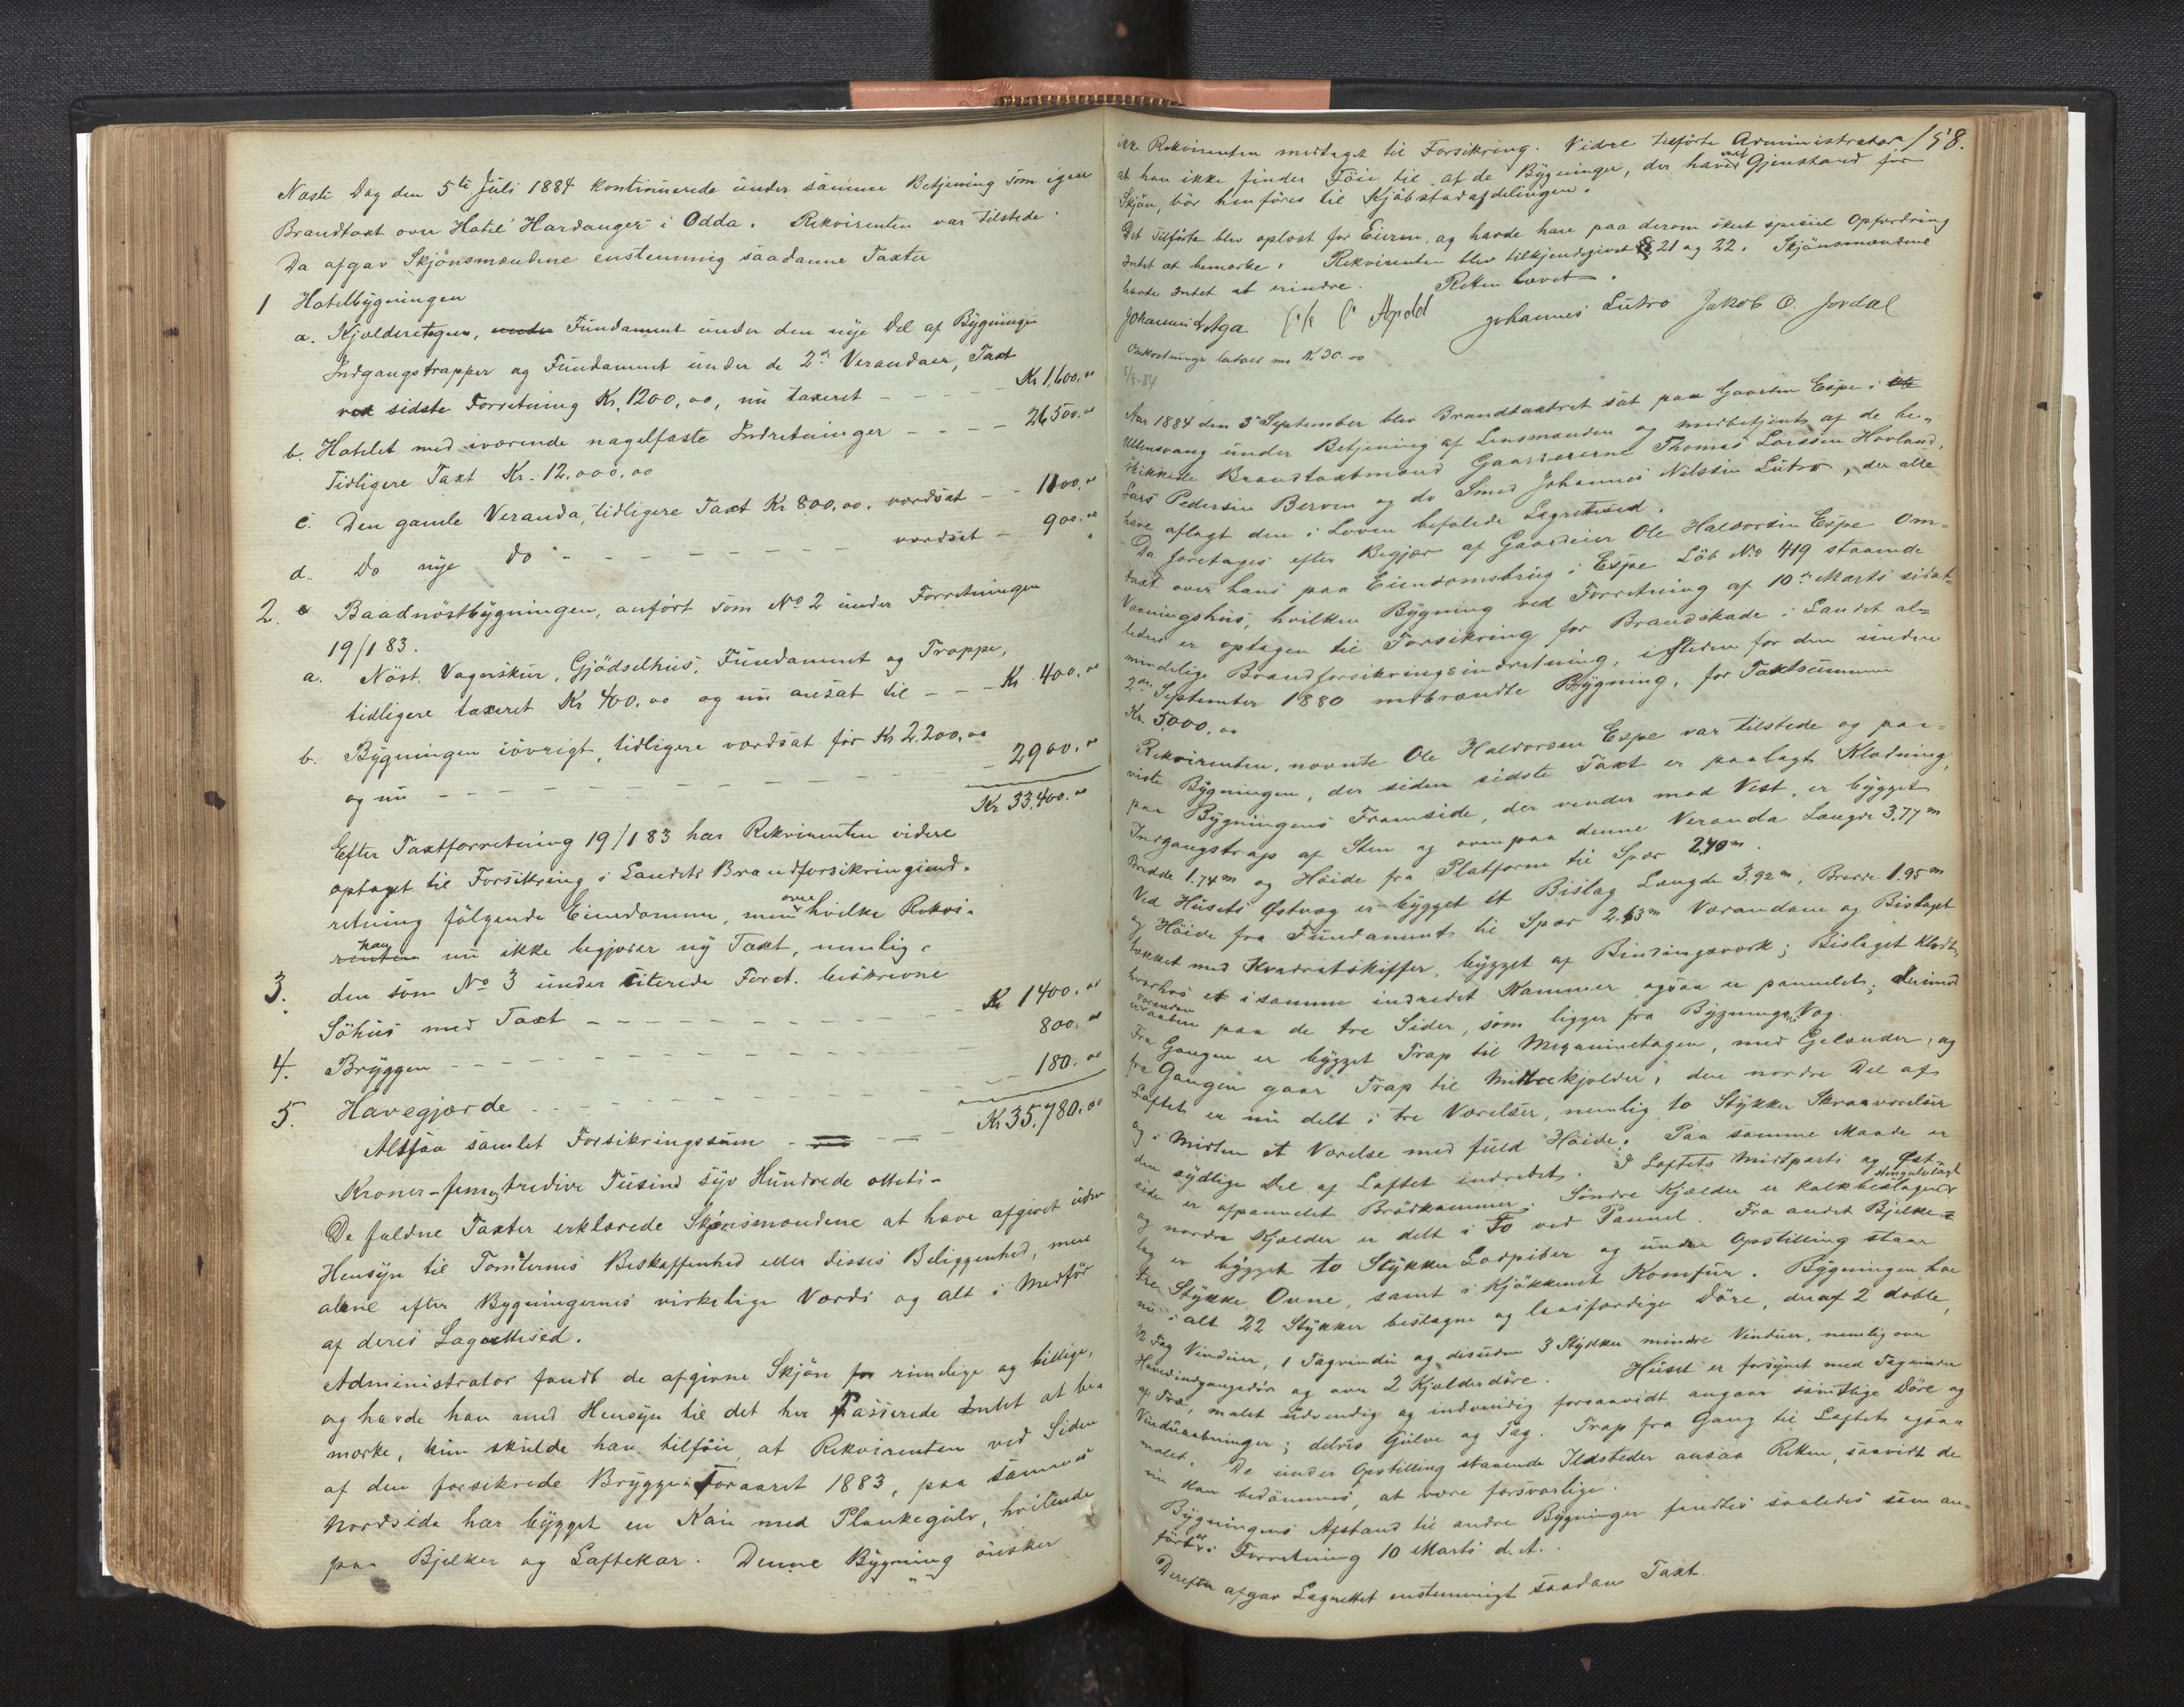 Næste Dag den 5te Juli 1884 kontinuerede under samme Betjening som igaar
Brandtaxt over Hotel Hardanger i Odda. Rekvirenten var tilstede.
Da afgav Skjönsmændene enstemmig saadanne Taxter
1 Hotelbygningen
a. Kjelderetagen, under Fundament under den nye Del af Bygningen
Indgangstrapper og Fundament under de 2de Verandaer, Taxt
ved sidste Forretning Kr. 1200,00, nu taxeret - - - - Kr 1,600.00
b. Hotellet med iværende nagelfaste Indretninger - - - - 26,500.00
Tidligere Taxt Kr. 12.000,00
c. Den gamle Veranda, tidligere Taxt Kr 800,00. værdsat - - 1100.00
d. Do nye do - - - - - - - - værdsat - 900.00
2. Baadnöstbygningen, anfört som No 2 under Forretningen
19/1 83.
a. Nöst. Vognskur, Gjödselhus, Fundament og Trappe,
tidligere taxeret Kr 400,00 og nu ansat til - - - Kr 400.00
b. Bygningen iövrigt, tidligere værdsat for Kr 2.200,00
og nu - - - - - - - - - - 2900.00
Kr 33,400.00
Efter Taxtforretning 19/1 83 har Rekvirenten videre
optaget til Forsikring i Landets Brandforsikringsind-
retning fölgende Eiendomme, men over hvilke Rekvi-
renten han nu ikke begjærer ny Taxt, nemlig:
3. den som No 3 under citerede Forret. beskrevne
Söhus med Taxt - - - - - - - - - Kr 1400.00
4. Bryggen - - - - - - - - - 800.00
5. Havegjærde - - - - - - - - - 180.00
Altsaa samlet Forsikringssum - - - - Kr 35,780.00
Kroner-femogtredive Tusind syv Hundrede otteti-
De faldne Taxter erklærede Skjönsmændene at have afgivet uden
Hensyn til Tomternes Beskaffenhed eller disses Beliggenhed, men
alene efter Bygningernes virkelige Værdi og alt i Medför
af deres Lagrettesed.
Administrator fandt de afgivne Skjön for rimelige og billige,
og havde han med Hensyn til det her Passerede Intet at be-
mærke, kun skulde han tilföie, at Rekvirenten ved Siden
af den forsikrede Brygge i Foraaret 1883, paa sammes
Nordside har bygget en Kai med Plankegulv, hvilende
paa Bjelker og Laftekar. Denne Bygning önsker
158.
ikke Rekvirenten medtaget til Forsikring. Videre tilförte Administrator
at han ikke finder Föie til af de Bygninger, der have været Gjenstand for
Skjön, bör henföres til Kjöbstadafdelingen.
Det Tilförte blev oplæst for Eieren, og havde han paa derom skeet speciel Opfordring
Intet at bemærke. Rekvirenten blev tilkjendegivet §§ 21 og 22. Skjönsmændene
havde Intet at erindre. Retten hævet.
Johannes Aga Johannes Lutro Jakob O. Jordal
Omkostninger betalt med Kr 30.00
Aar 1884 den 3die September blev Brandtaxtret sat paa Gaarden Espe i
Ullensvang under Betjening af Lensmanden og medbetjent af de be-
skikkede Brandtaxtmænd Gaardeierne Thomas Larssen Hovland,
Lars Pedersen Berven og do Smed Johannes Nilssen Lutro, der alle
have aflagt den i Loven befalede Lagrettesed.
Da foretages efter Begjær af Gaardeier Ole Haldorsen Espe Om-
taxt over hans paa Eiendomsbrug i Espe Löb No 419 staaende
Vaaningshus, hvilken Bygning ved Forretning af 10de Marts sidst-
leden er optagen til Forsikring for Brandskade i Landet al-
mindelige Brandforsikringsindretning, isteden for den under
2den September 1880 nedbrændte Bygning, for Taxtsummen
Kr. 5000,00
Rekvirenten, nævnte Ole Haldorsen Espe var tilstede og paa-
viste Bygningen, der siden sidste Taxt er paalagt Klædning,
paa Bygningens Framside, der vender mod Vest, er bygget
Indgangstrap af Sten og ovenpaa denne Veranda Længde 3.77 m
Bredde 1.74 m og Höide fra Platform til Spær 2,40 m.
Ved Husets Östvæg er bygget et Bislag Længde 3.92 m, Bredde 1.95 m
og Höide fra Fundament til Spær 2.63 m Verandaen og Bislaget
tækket med Kvadratskiffer, bygget af Bindingsværk; Bislaget Klædt,
hvorhos et i samme indredet Kammer ogsaa er pannelet; derimod
er Verandaen aaben paa de tre Sider, som ligger fra Bygningens Væg.
Fra Gangen er bygget Trap til Mezaninetagen, med Gelænder, og
fra Gangen gaar Trap til Melkekjelder, den nordre Del af
Loftet er nu delt i tre Værelser, nemlig to Stykker Skraaværelser
og i Midten et Værelse med fuld Höide. Paa samme Maade er
den sydlige Del af Loftet indredet. I Loftets Midtparti og Öst-
side er afpannelet Brödkammer. Söndre Kjælder er kalkbeslagen
og nordre Kjælder er delt i To ved Pannel. Fra andet Bjelke-
lag er bygget to Stykker Ladpiber og under Opstilling staar
tre Stykke Ovne, samt i Kjökkenet Komfur. Bygningen har
nu i alt 22 Stykker beslagne og laasfærdige Döre, deraf 2 doble,
22 Fag Vinduer, 1 Tagvindu og desuden 3 Stykker mindre Vinduer, nemlig over
Hovedindgangsdör og over 2 Kjælderdöre. Huset er forsynet med Tagrender
af Træ, malet udvendig og indvendig forsaavidt angaar samtlige Döre og
Vinduaabninger; delvis Gulve og Tag. Trap fra Gang til Loftet ogsaa
malet. De under Opstilling staaende Ildsteder ansaa Retten, saavidt de
nu kan bedömmes, at være forsvarlige.
Bygningens Afstand til andre Bygninger fandtes saaledes som an-
fört er i Forretning 10 Marts d. A.
Derefter afgav Lagrettet enstemmigt saadan Taxt